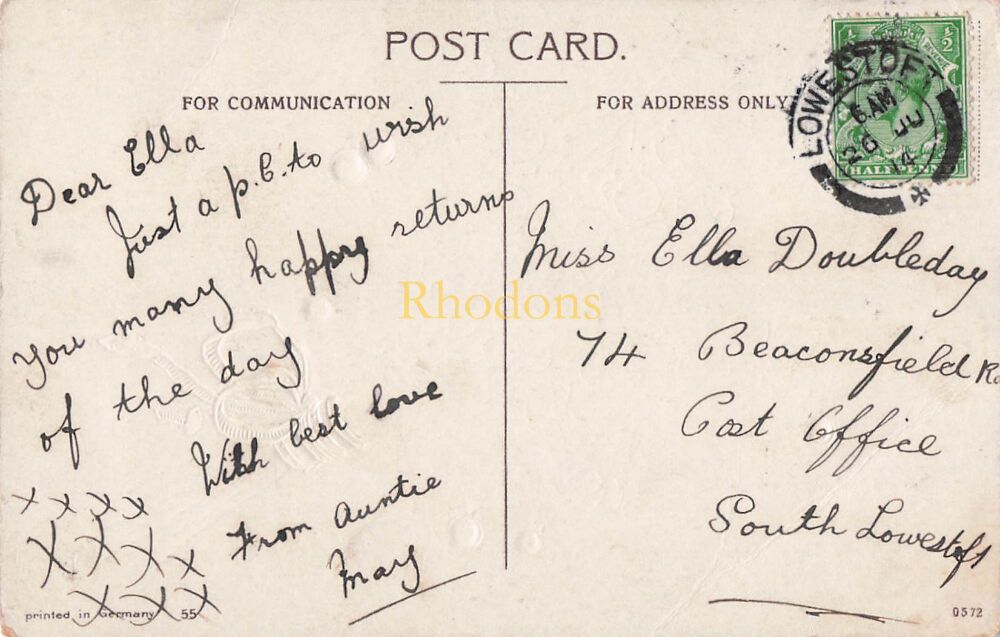 POST CARD.
FOR COMMUNICATION
FOR ADDRESS ONLY
½ ½
HALFPENNY
LOWESTOFT
6 AM
26 JU
14
Dear Ella
Just a p.c. to wish
you many happy returns
of the day
With best love
From Auntie
May
X X X X
X X X X
X X X
Miss Ella Doubleday
74 Beaconsfield Rd
Post Office
South Lowestoft
Rhodons
printed in Germany 55
0572